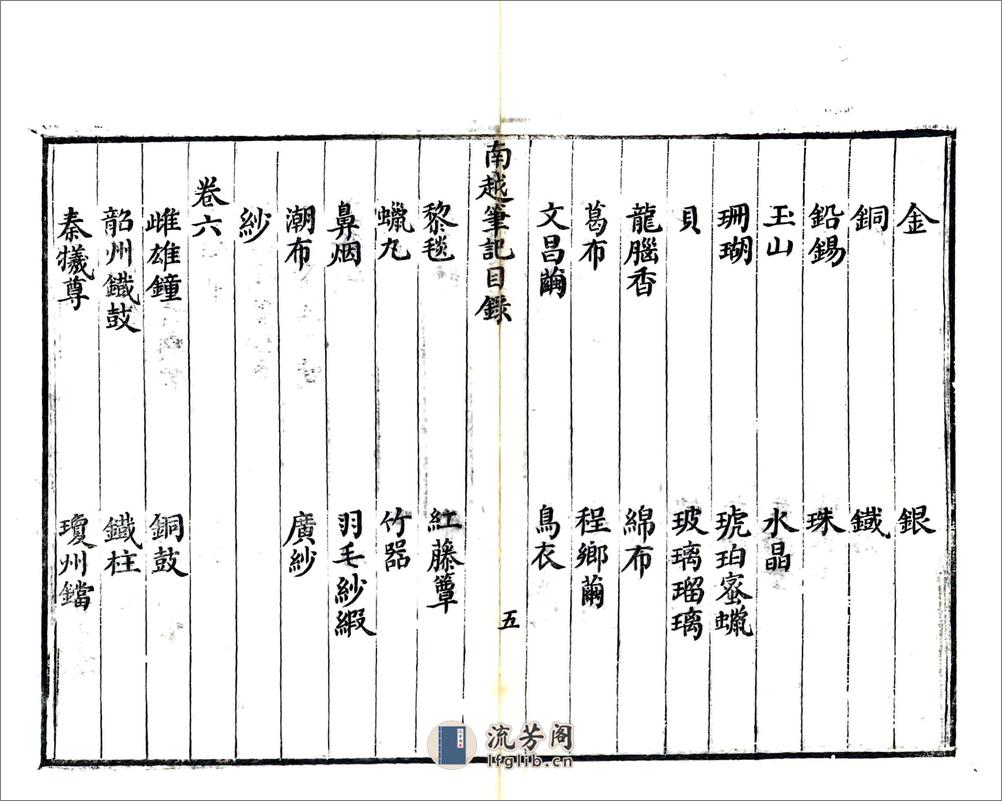 金 銀
銅 鐵
鉛錫 珠
玉山 水晶
珊瑚 琥珀蜜蠟
貝 玻璃瑠璃
龍腦香 綿布
葛布 程鄉繭
文昌繭 鳥衣
南越筆記目錄 五
黎毯 紅藤簟
蠟丸 竹器
鼻烟 羽毛紗緞
潮布 廣紗
紗
卷六
雌雄鐘 銅鼓
韶州鐵鼓 鐵柱
秦犧尊 瓊州鐺
流芳阁
lfglib.cn